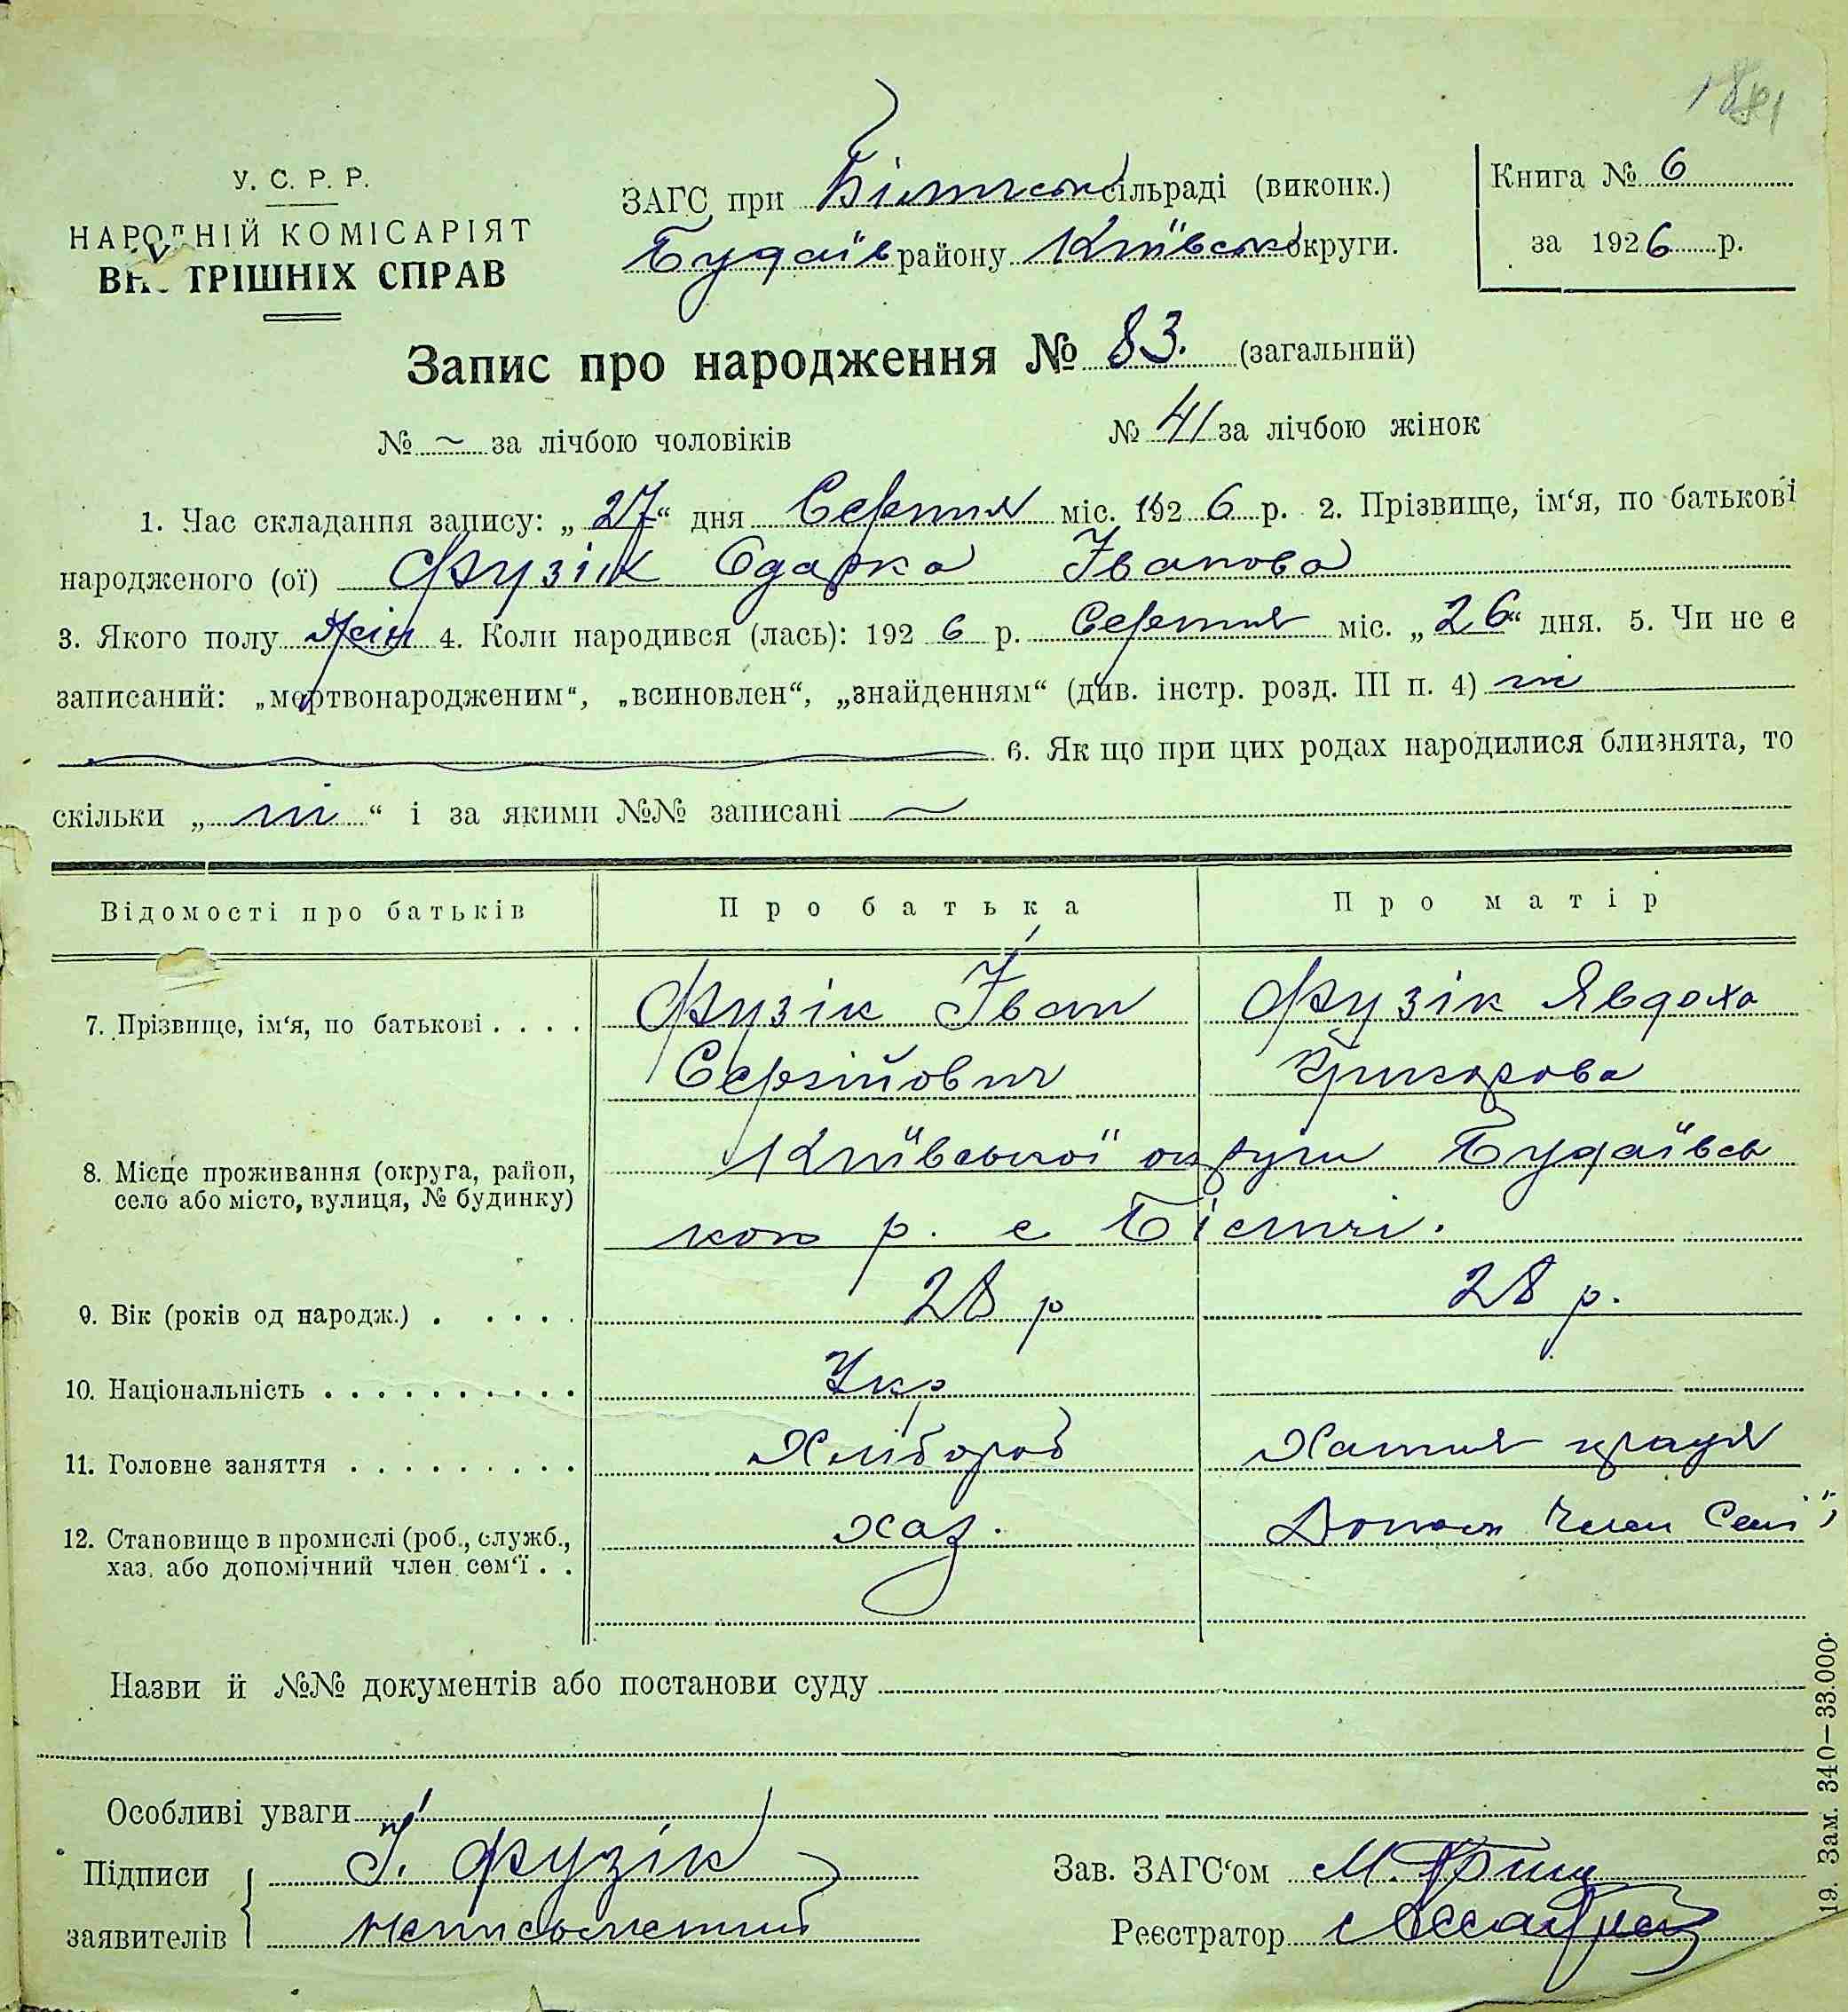 У. С. Р. Р.
НАРОДНІЙ КОМІСАРІЯТ
ВНУТРІШНІХ СПРАВ
ЗАГС при Білицькій сільраді (виконк.)
Будаїв району Київсько округи.
Книга № 6
за 1926 р.
Запис про народження № 83. (загальний)
№ ~ за лічбою чоловіків № 41 за лічбою жінок
1. Час складання запису: „27“ дня Серпня міс. 1926 р. 2. Прізвище, ім'я, по батькові
народженого (ої) Фузік Одарка Іванова
3. Якого полу жін 4. Коли народився (лась): 1926 р. Серпня міс. „26“ дня. 5. Чи не є
записаний: „мертвонародженим“, „всиновлен“, „знайденням“ (див. інстр. розд. III п. 4) ні
6. Як що при цих родах народилися близнята, то
скільки „ ні “ і за якими №№ записані ~
Відомості про батьків Про батька Про матір
7. Прізвище, ім'я, по батькові . . . . Фузік Іван Фузік Явдоха
Сергійович Григорова
8. Місце проживання (округа, район, Київської округи Будаївсь
село або місто, вулиця, № будинку) кого р. с
9. Вік (років од народж.) . . . . . 28 р 28 р.
10. Національність . . . . . . . . . . Укр
11. Головне заняття . . . . . . . . . Хлібороб Хатня праця
12. Становище в промислі (роб., служб., хаз. Допом член сем'ї
хаз. або допомічний член сем'ї . .
Назви й №№ документів або постанови суду
Особливі уваги
Підписи І. Фузік Зав. ЗАГС'ом М.
заявителів неписьменний Реєстратор
19. Зам. 340—33.000.